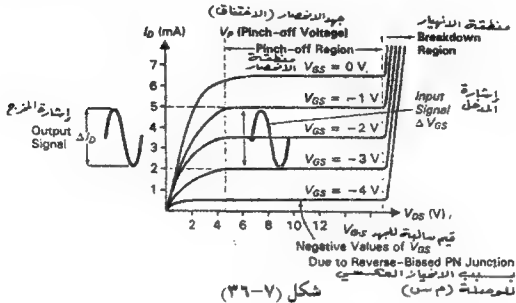 جهد الانحصار (الاختناق)
منطقة الانهيار
I_D (mA)
V_P (Pinch-off Voltage)
Breakdown Region
Pinch-off Region
منطقة الانحصار
V_GS = 0 V
7
6
5
4
3
2
1
V_GS = −1 V
V_GS = −2 V
V_GS = −3 V
V_GS = −4 V
إشارة المدخل
Input Signal
ΔV_GS
إشارة المخرج
Output Signal
ΔI_D
2 4 6 8 10 12
V_DS (V)
قيم سالبة للجهد V_GS
Negative Values of V_GS
Due to Reverse-Biased PN Junction
بسبب الانحياز العكسي
للوصلة (م س)
شكل (٧-٣٦)